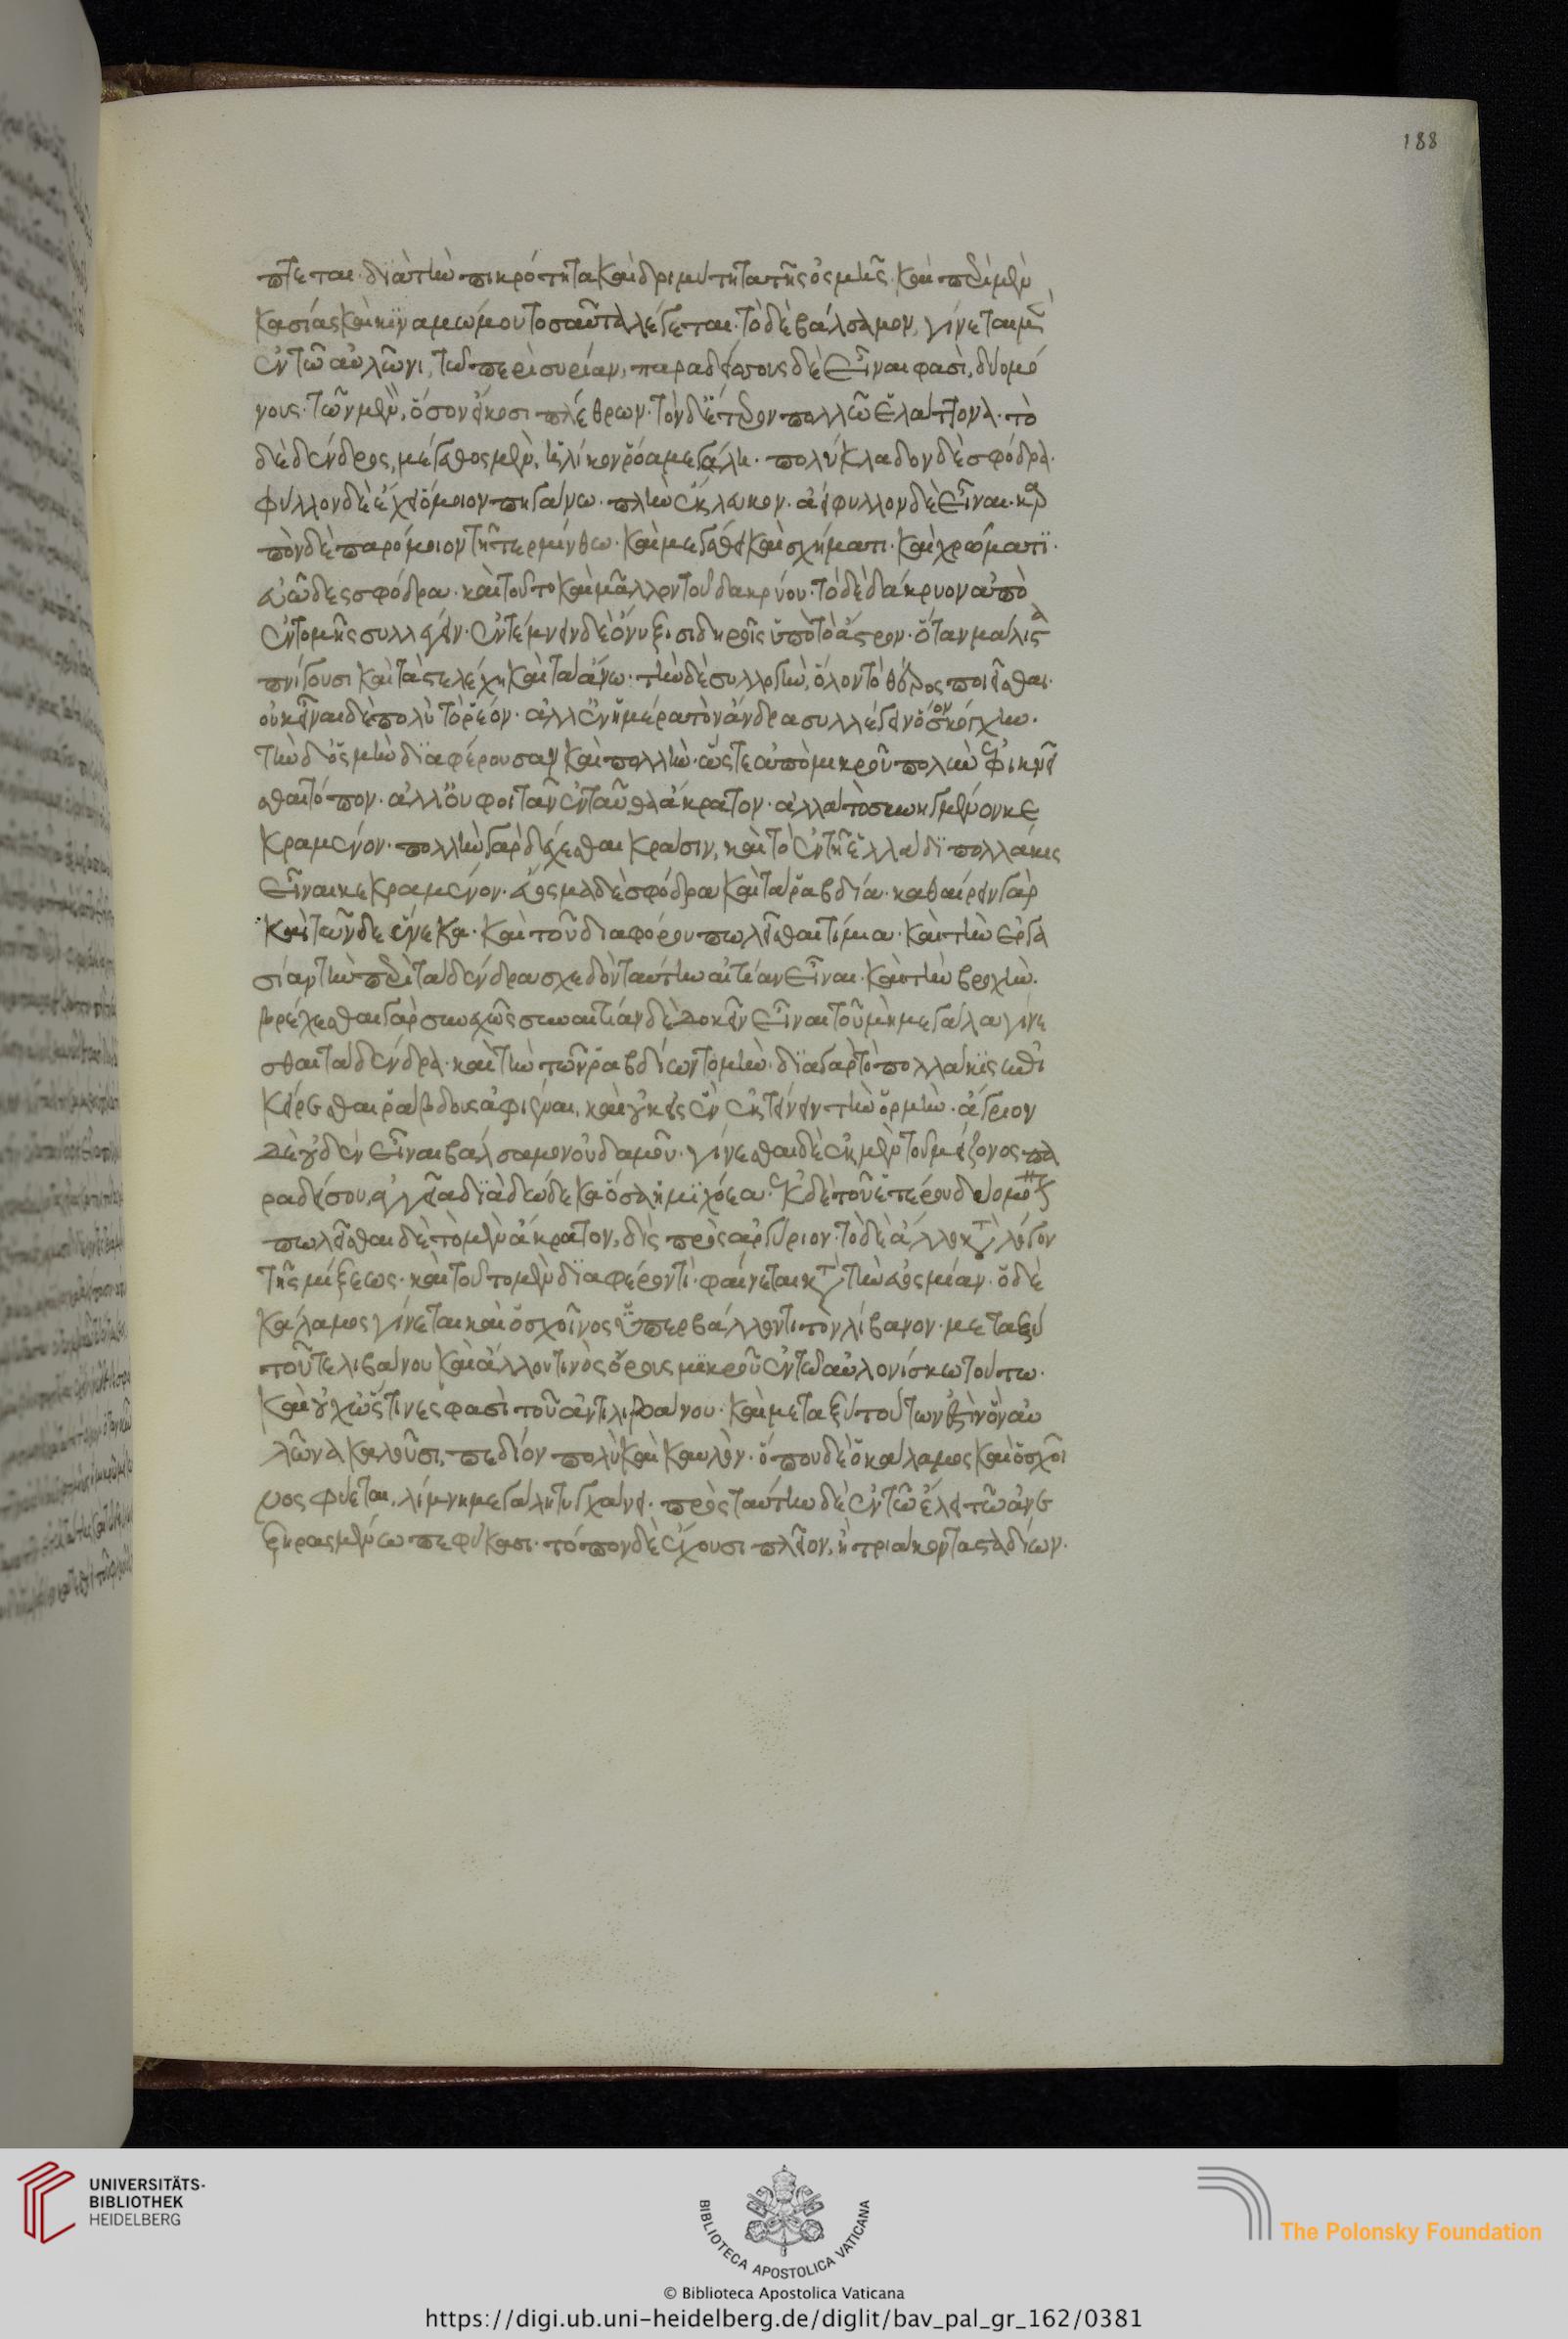 188
πτεται· διὰ τὴν πικρότητα καὶ δριμύτητα τῆς ὀσμῆς. καὶ περὶ μὲν
κασίας καὶ κιναμώμου τοσαῦτα λέγεται. τὸ δὲ βάλσαμον, γίνεται μὲν
ἐν τῶ αὐλῶνι, τῶ περὶ συρίαν, παραδείσους δὲ εἶναί φασι, δύο μό
νους. τῶν μὲν, ὅσον εἴκοσι πλέθρων. τὸν δ' ἕτερον πολλῶ ἐλάττονα. τὸ
δὲ δένδρος, μέγαθος μὲν, ἡλίκον ῥόα μεγάλη. πολύκλαδον δὲ σφόδρα.
φύλλον δὲ ἔχει ὅμοιον πηγάνω. πλὴν ἔκλευκον. ἀείφυλλον δὲ εἶναι. καρ
πὸν δὲ παρόμοιον τῆ τερμίνθω. καὶ μεγάθει καὶ σχήματι. καὶ χρώματι.
εὐῶδες σφόδρα. καὶ τοῦτο καὶ μᾶλλον τοῦ δακρύου. τὸ δὲ δάκρυον ἀπὸ
ἐντομῆς συλλέγειν. ἐντέμνειν δὲ ὄνυξι σιδηροῖς ὑπὸ τὸ ἄστρον. ὅταν μάλιστα
πνίγουσι καὶ τὰ στελέχη καὶ τὰ ἄνω. τὴν δὲ συλλογὴν, ὅλον τὸ θέρος ποιεῖσθαι.
οὐκ εἶναι δὲ πολὺ τὸ ῥέον. ἀλλ' ἐν ἡμέρα τὸν ἄνδρα συλλέγειν ὅσον κόγχην.
τὴν δ' ὀσμὴν διαφέρουσαν καὶ πολλὴν. ὥστε ἀπὸ μικροῦ πολὺν ἐφικνεῖ
σθαι τόπον. ἀλλ' οὐ φοιτᾶν ἐνταῦθα ἄκρατον. ἀλλὰ τὸ συνηγμένον κε
κραμένον. πολλὴν γὰρ δέχεσθαι κρᾶσιν, καὶ τὸ ἐν τῆ ἑλλάδι πολλάκις
εἶναι κεκραμένον. εὔοσμα δὲ σφόδρα καὶ τὰ ῥαβδία. καθαίρειν γὰρ
καὶ τῶνδε ἕνεκα. καὶ τοῦ διαφόρου πωλεῖσθαι τίμια. καὶ τὴν ἐργα
σίαν τὴν περὶ τὰ δένδρα σχεδὸν ταύτην αἰτίαν εἶναι. καὶ τὴν βροχὴν.
βρέχεσθαι γὰρ συνεχῶς συναιτίαν δὲ δοκεῖν εἶναι τοῦ μὴ μεγάλα γίνε
σθαι τὰ δένδρα. καὶ τὴν τῶν ῥαβδίων τομὴν. διὰ γὰρ τὸ πολλάκις
κείρεσθαι ῥάβδους ἀφιέναι, καὶ οὐκ εἰς ἓν ἐκτείνειν τὴν ὁρμὴν. ἄγριον
δὲ οὐδὲν εἶναι βάλσαμον οὐδαμοῦ. γίνεσθαι δὲ ἐκ μὲν τοῦ μείζονος πα
ραδείσου, ἀγγεῖα διὰ δώδεκα ὅσα ἡμιχόεα. ἐκ δὲ τοῦ ἑτέρου δύο
πωλεῖσθαι δὲ τὸ μὲν ἄκρατον, δὶς πρὸς ἀργύριον. τὸ δὲ ἄλλο κατὰ λόγον
τῆς μίξεως. καὶ τοῦτο μὲν διαφέρον τι φαίνεται κατὰ τὴν εὐοσμίαν. ὁ δὲ
κάλαμος γίνεται καὶ ὁ σχοῖνος ὑπερβάλλοντι τὸν λίβανον. μεταξύ
τοῦ τε λιβάνου καὶ ἄλλου τινὸς ὄρους μικροῦ ἐν τῶ αὐλονίσκω τούτω.
καὶ οὐχ ὥς τινες φασὶ τοῦ ἀντιλιβάνου. καὶ μεταξὺ τούτων ἐστὶν ὃν αὐ
λῶνα καλοῦσι, πεδίον πολὺ καὶ καλὸν. ὅπου δὲ ὁ κάλαμος καὶ ὁ σχοῖ
νος φύεται, λίμνη μεγάλη τυγχάνει. πρὸς ταύτην δὲ ἐν τῶ ἕλει τῶ ἀνε
ξηρασμένω πεφύκασι. τόπον δὲ ἔχουσι πλεῖον, ἢ τριάκοντα σταδίων.
UNIVERSITÄTS-
BIBLIOTHEK
HEIDELBERG
BIBLIOTECA APOSTOLICA VATICANA
The Polonsky Foundation
© Biblioteca Apostolica Vaticana
https://digi.ub.uni-heidelberg.de/diglit/bav_pal_gr_162/0381